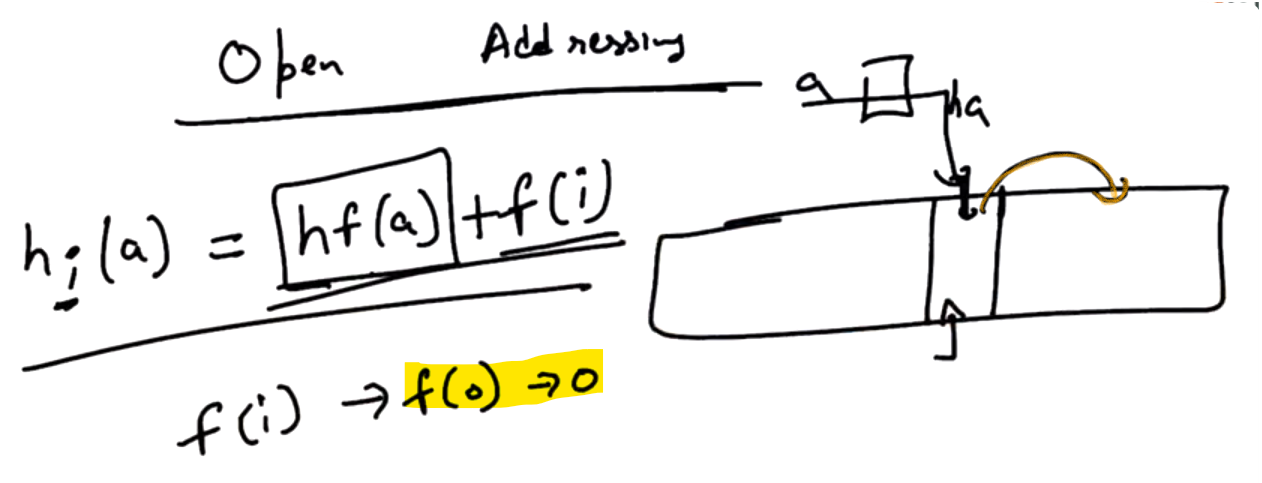 Open Addressing
a
ha
hi(a) = hf(a) + f(i)
f(i) → f(0) → 0